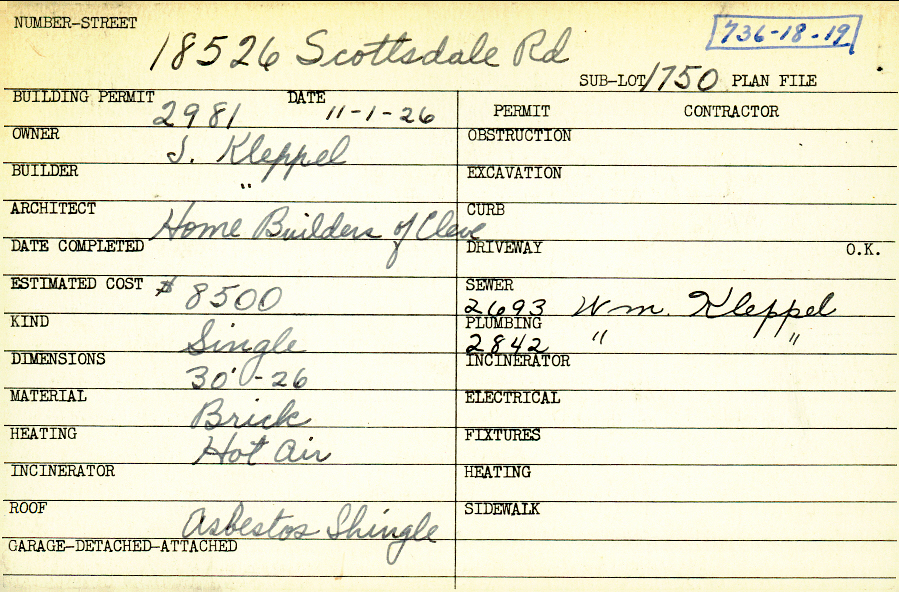 NUMBER-STREET
18526 Scottsdale Rd
736-18-19
SUB-LOT 1750 PLAN FILE
BUILDING PERMIT 2981 DATE 11-1-26
OWNER J. Kleppel
BUILDER "
ARCHITECT Home Builders of Cleve
DATE COMPLETED
ESTIMATED COST $ 8500
KIND Single
DIMENSIONS 30'-26
MATERIAL Brick
HEATING Hot Air
INCINERATOR
ROOF Asbestos Shingle
GARAGE-DETACHED-ATTACHED
PERMIT CONTRACTOR
OBSTRUCTION
EXCAVATION
CURB
DRIVEWAY O.K.
SEWER
2693 Wm. Kleppel
PLUMBING
2842 " "
INCINERATOR
ELECTRICAL
FIXTURES
HEATING
SIDEWALK